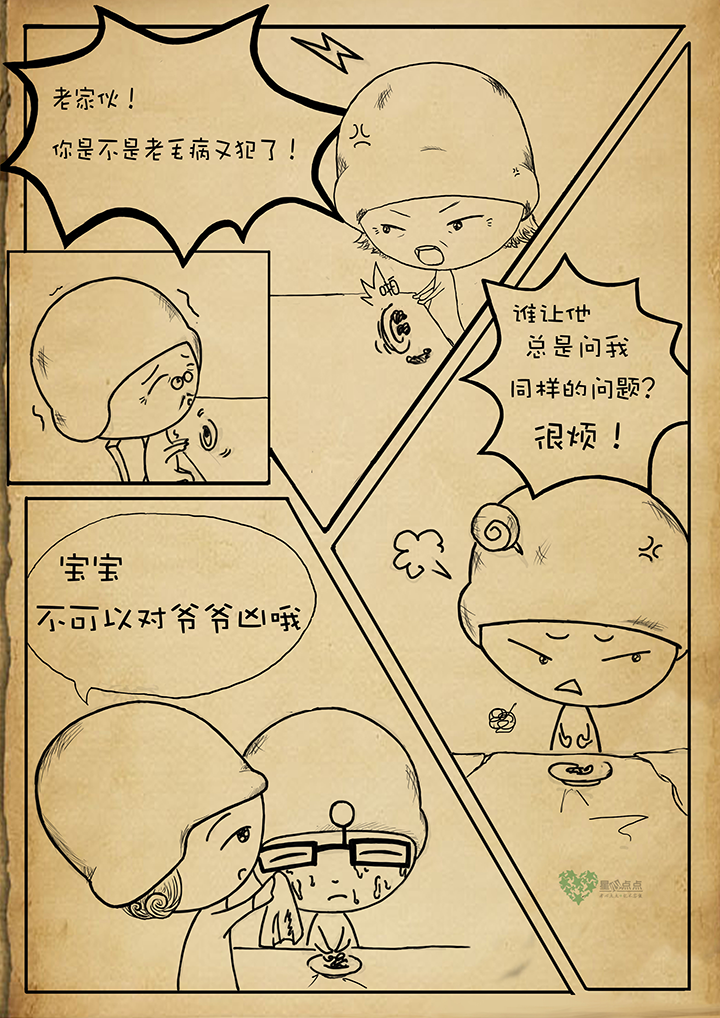 老家伙！
你是不是老毛病又犯了！
啪
谁让他
总是问我
同样的问题？
很烦！
宝宝
不可以对爷爷凶哦
星心点点